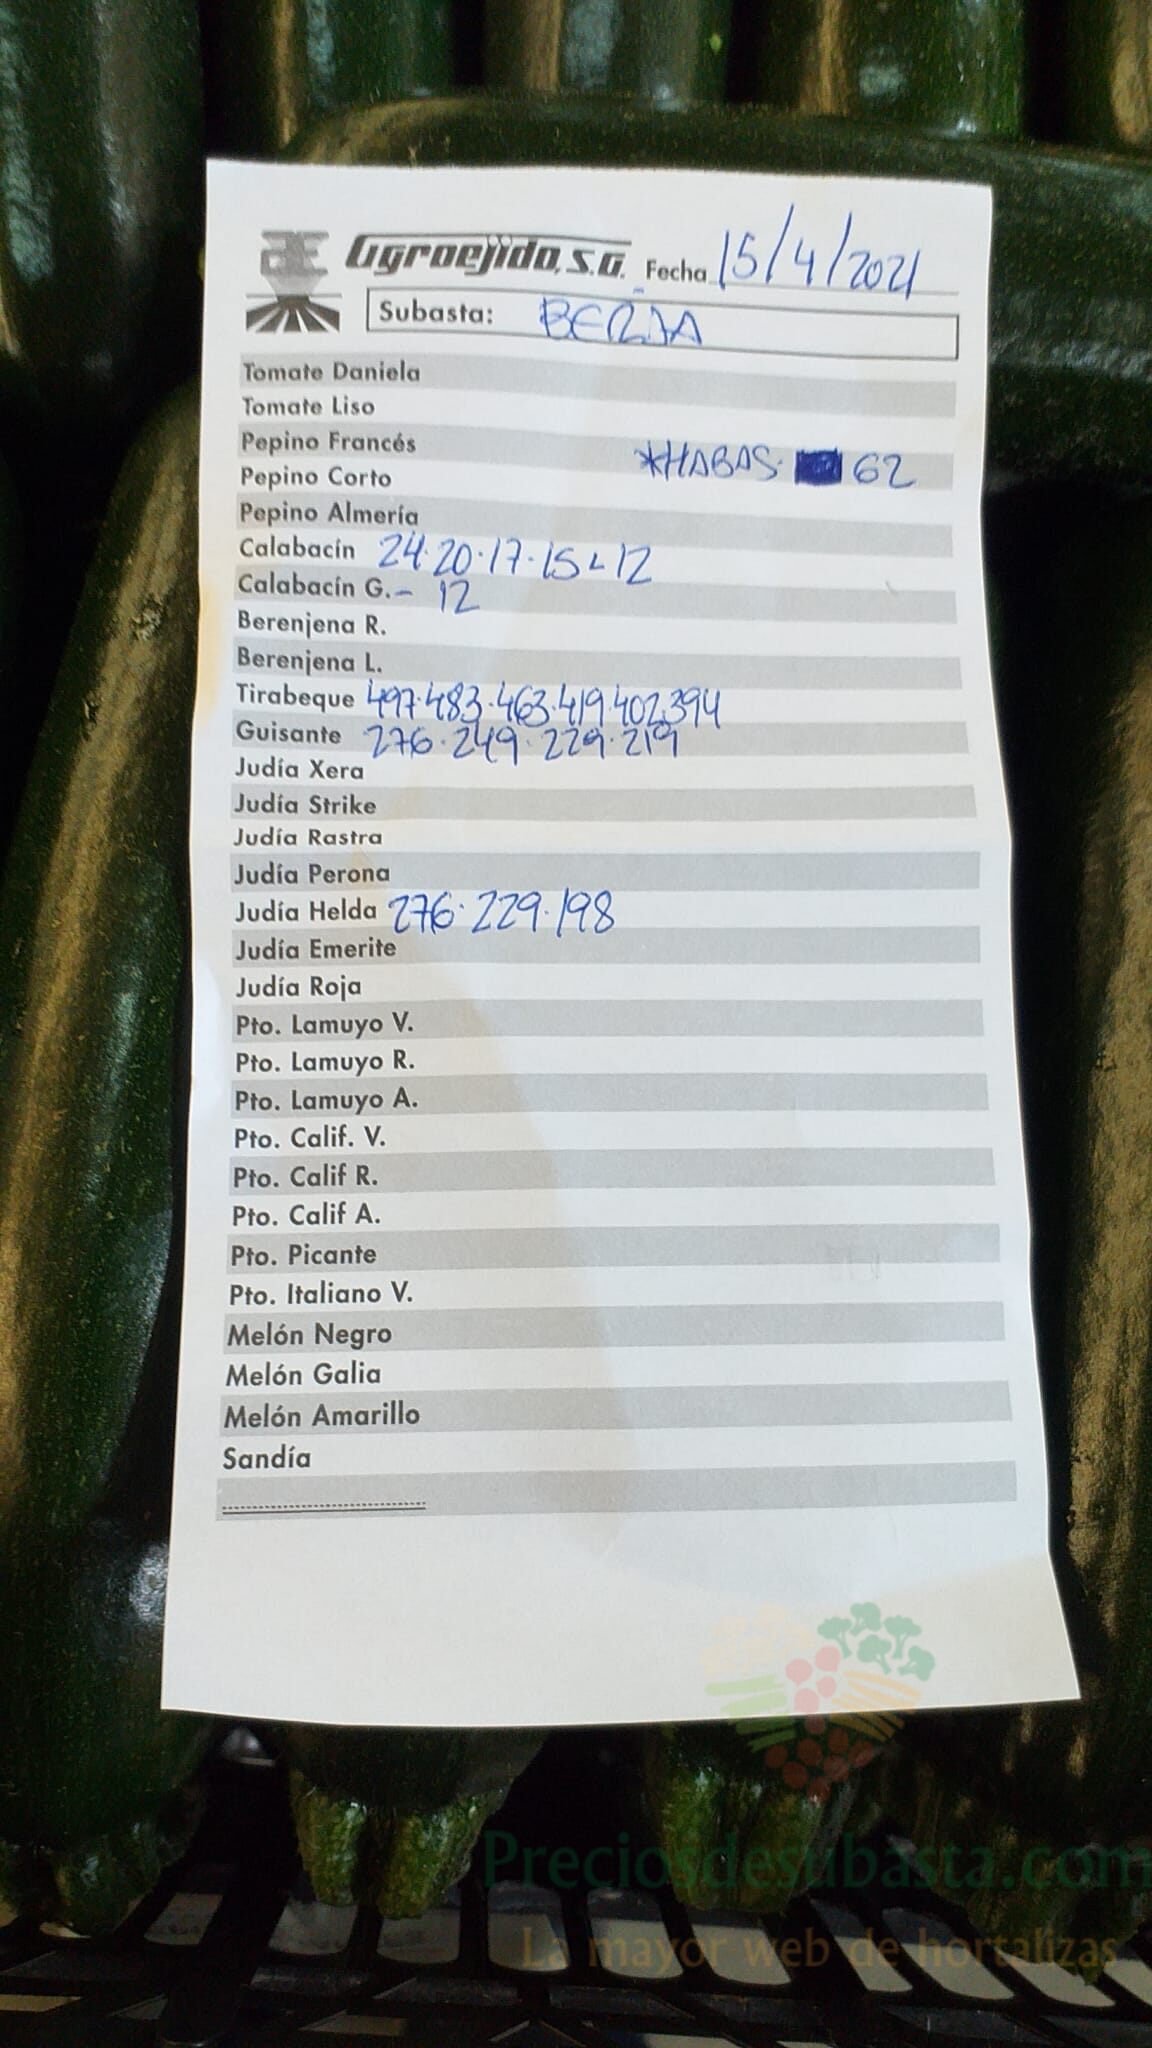 Agroejido, S.A. Fecha 15/4/2021
Subasta: BERJA
Tomate Daniela
Tomate Liso
Pepino Francés *HABAS. 62
Pepino Corto
Pepino Almería
Calabacín 24.20.17.15-12
Calabacín G.- 12
Berenjena R.
Berenjena L.
Tirabeque 497.483.463.419.402.394
Guisante 276.249.229.219
Judía Xera
Judía Strike
Judía Rastra
Judía Perona
Judía Helda 276.229.198
Judía Emerite
Judía Roja
Pto. Lamuyo V.
Pto. Lamuyo R.
Pto. Lamuyo A.
Pto. Calif. V.
Pto. Calif R.
Pto. Calif A.
Pto. Picante
Pto. Italiano V.
Melón Negro
Melón Galia
Melón Amarillo
Sandía
Preciosdesubasta.com
La mayor web de hortalizas